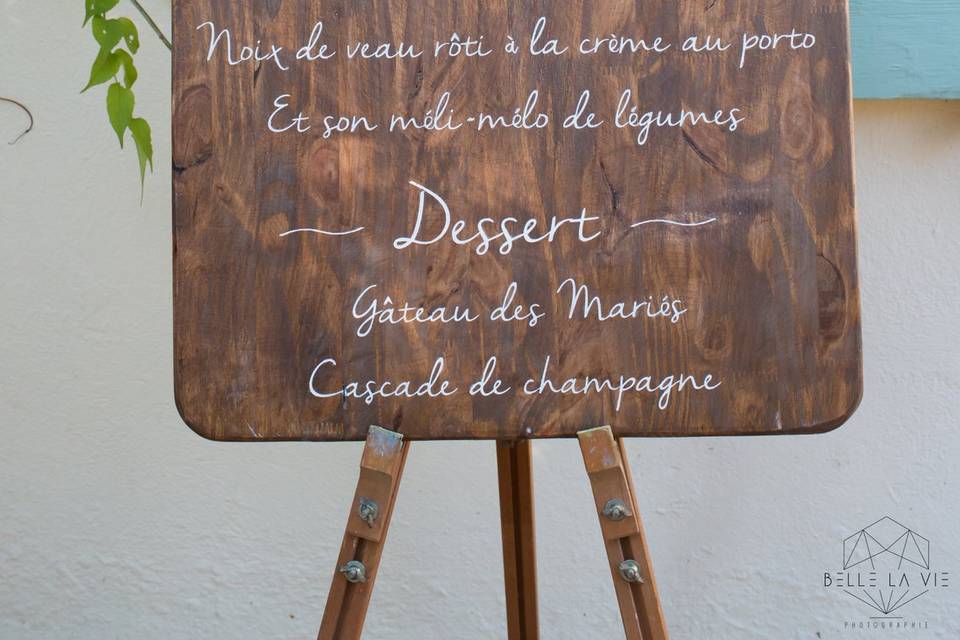 Noix de veau rôti à la crème au porto
Et son méli-mélo de légumes
Dessert
Gâteau des Mariés
Cascade de champagne
BELLE LA VIE
PHOTOGRAPHIE